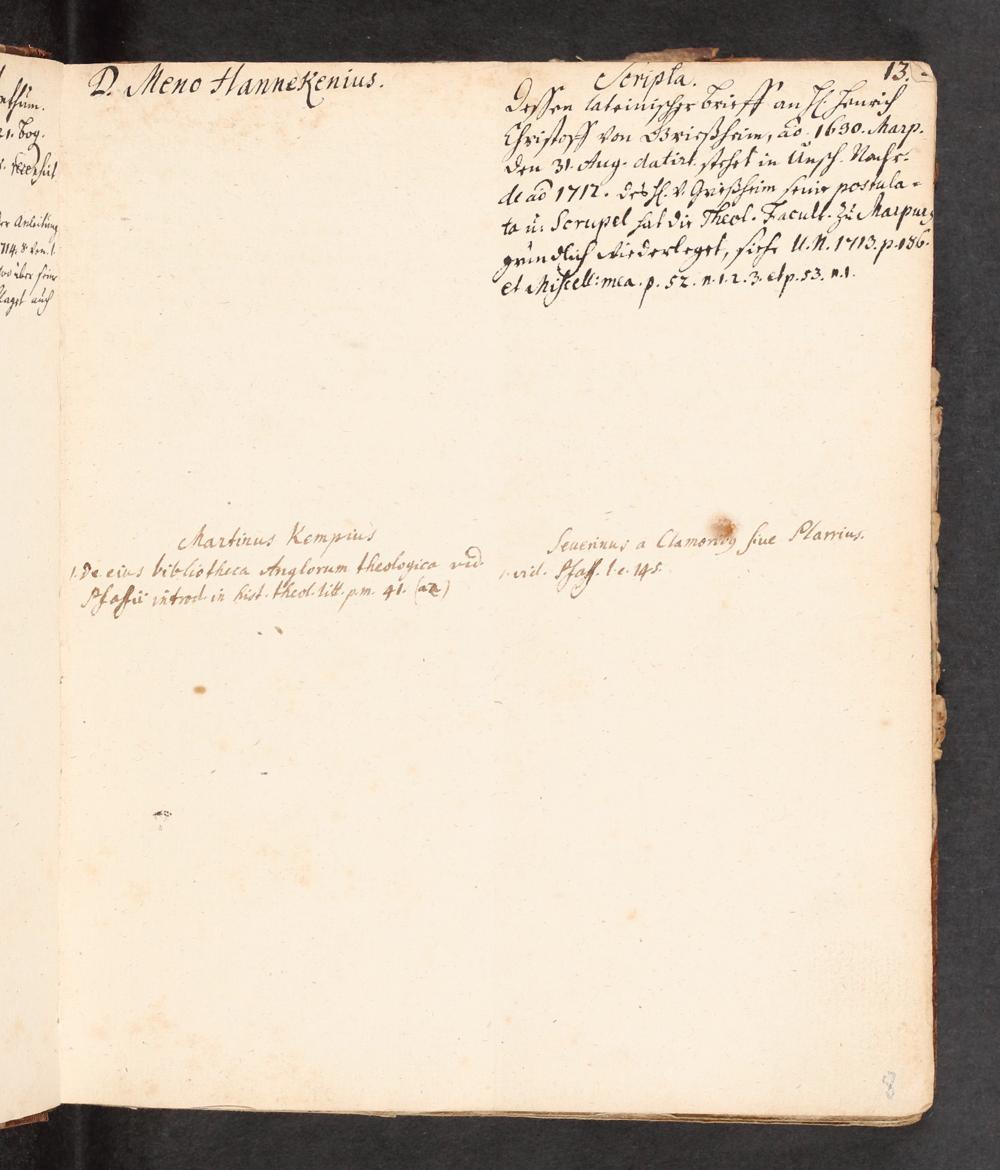 athüm.
21. Bog.
er Anleitung
1714. 8. von
wo über sein
klaget auch
D. Meno Hannekenius.
Scripta.
13.
Dessen lateinischer Brieff an H. Henrich
Christoff von Grießheim, aõ. 1630. Marp.
den 31. Aug. datirt. stehet in Unsch. Nachr.
de aõ 1712. des H. v. Grießheim seine postula-
ta u. Scrupel hat die Theol. Facult. zu Marpurg
gründlich wiederleget, siehe U.N. 1713. p. 186.
et Miscell: mea. p. 52. n. 1. 2. 3. et p. 53. n. 1.
Martinus Kempius
1. De eius bibliotheca Anglorum theologica vid.
Pfaffii introd. in hist. theol. litt. p. m. 41.
Severinus a Clamoribus sive Plarrius.
1. vid. Pfaff. l. c. 145.
8